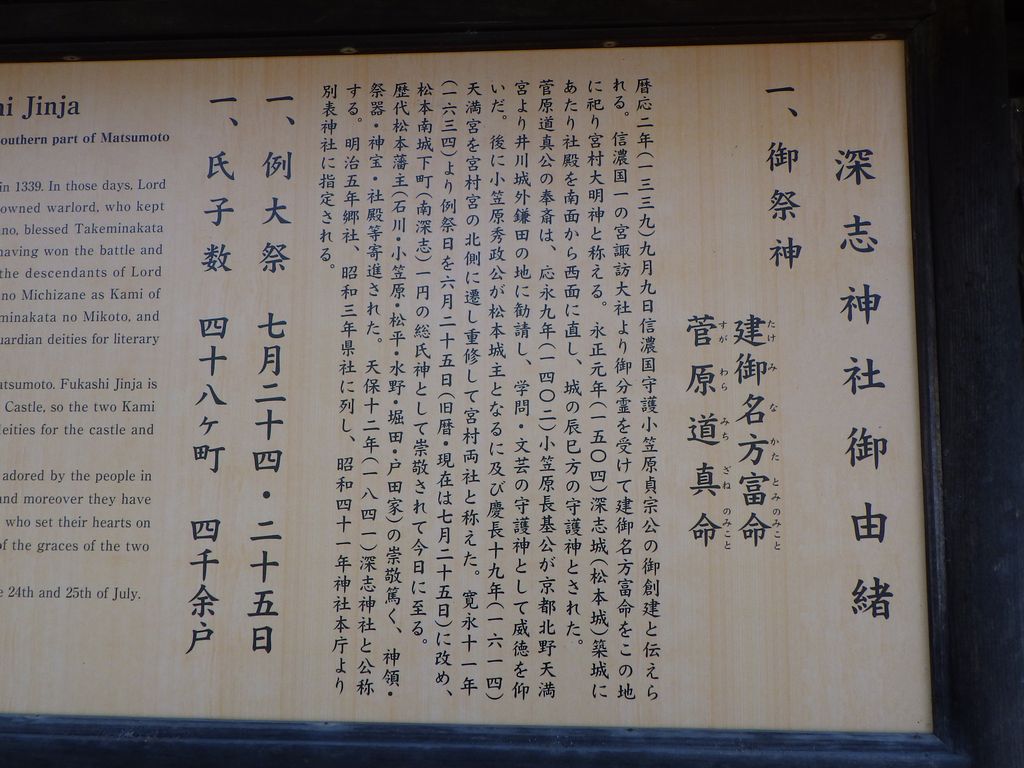 深志神社御由緒
一、御祭神
建御名方富命
たけみなかたとみのみこと
菅原道真命
すがわらみちざねのみこと
暦応二年(一三三九)九月九日信濃国守護小笠原貞宗公の御創建と伝えら
れる。信濃国一の宮諏訪大社より御分霊を受けて建御名方富命をこの地
に祀り宮村大明神と称える。永正元年(一五〇四)深志城(松本城)築城に
あたり社殿を南面から西面に直し、城の辰巳方の守護神とされた。
菅原道真公の奉斎は、応永九年(一四〇二)小笠原長基公が京都北野天満
宮より井川城外鎌田の地に勧請し、学問・文芸の守護神として威徳を仰
いだ。後に小笠原秀政公が松本城主となるに及び慶長十九年(一六一四)
天満宮を宮村宮の北側に遷し重修して宮村両社と称えた。寛永十一年
(一六三四)より例祭日を六月二十五日(旧暦・現在は七月二十五日)に改め、
松本南城下町(南深志)一円の総氏神として崇敬されて今日に至る。
歴代松本藩主(石川・小笠原・松平・水野・堀田・戸田家)の崇敬篤く、神領・
祭器・神宝・社殿等寄進された。天保十二年(一八四一)深志神社と公称
する。明治五年郷社、昭和三年県社に列し、昭和四十一年神社本庁より
別表神社に指定される。
一、例大祭 七月二十四・二十五日
一、氏子数 四十八ヶ町 四千余戸
Jinja
outhern part of Matsumoto
in 1339. In those days, Lord
owned warlord, who kept
no, blessed Takeminakata
having won the battle and
the descendants of Lord
no Michizane as Kami of
minakata no Mikoto, and
uardian deities for literary
atsumoto. Fukashi Jinja is
Castle, so the two Kami
deities for the castle and
adored by the people in
and moreover they have
who set their hearts on
of the graces of the two
e 24th and 25th of July.